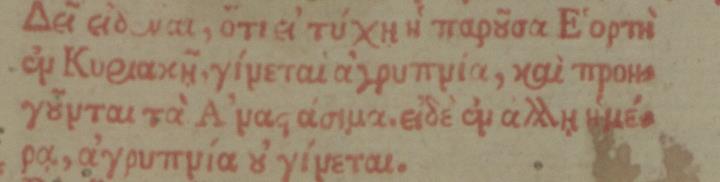 Δεῖ εἰδέναι, ὅτι εἰ τύχῃ ἡ παροῦσα Ἑορτὴ
ἐν Κυριακῇ, γίνεται ἀγρυπνία, καὶ προη-
γοῦνται τὰ Ἀναστάσιμα. εἰδὲ ἐν ἄλλῃ ἡμέ-
ρᾳ, ἀγρυπνία οὐ γίνεται.